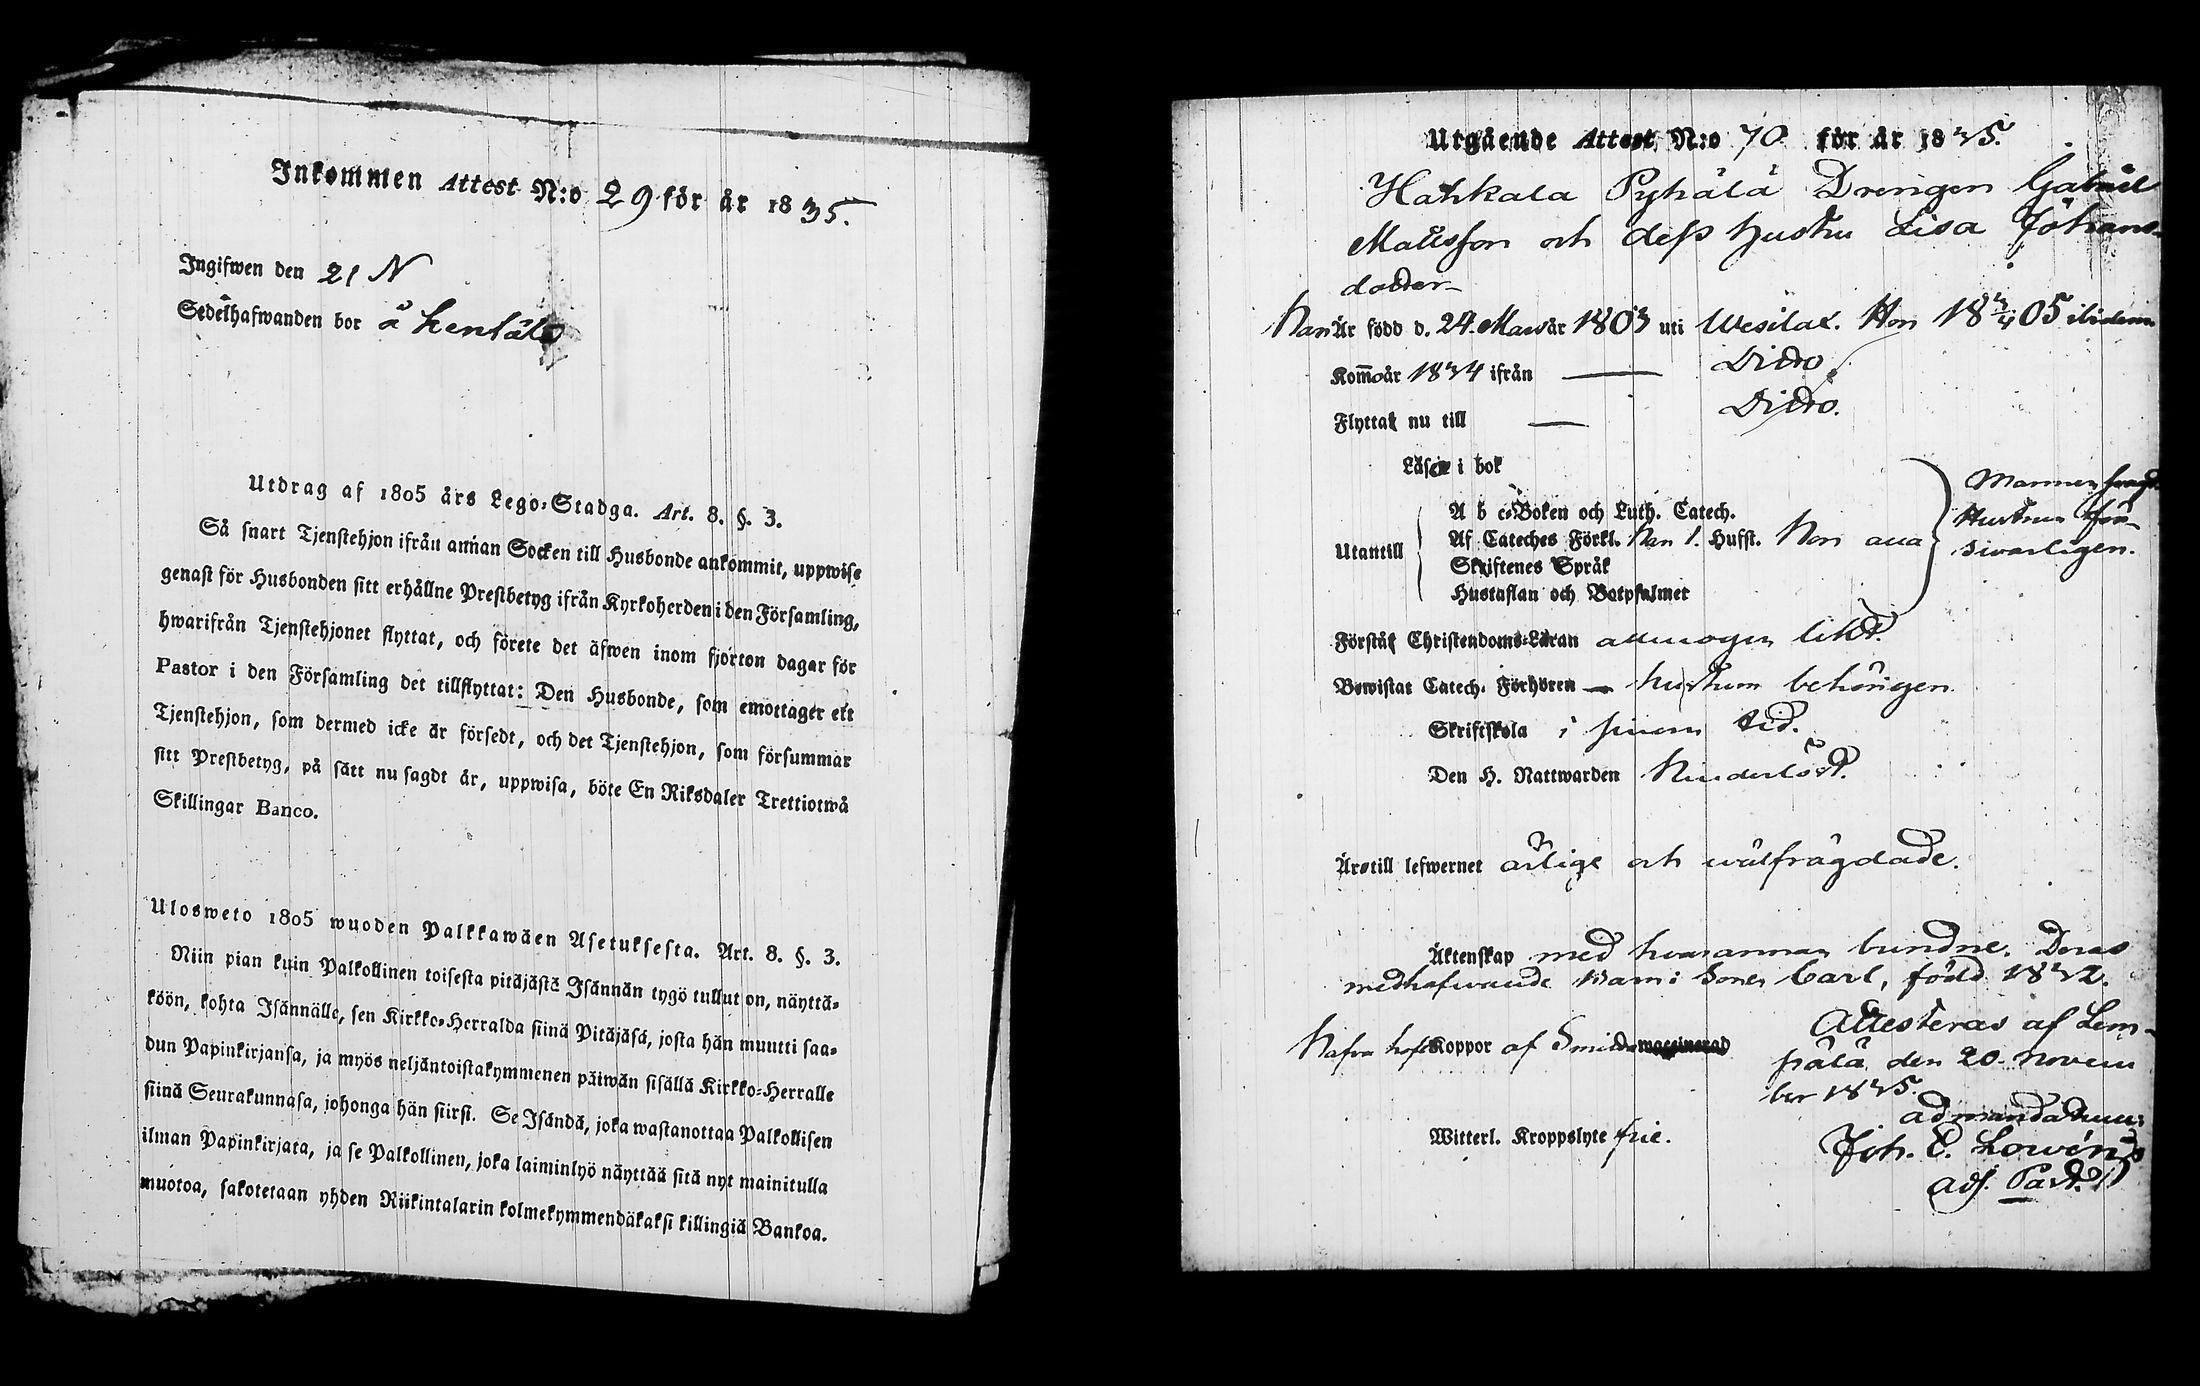 Inkommen Attest N:o 29 för år 1835.
Ingifwen den 21 N
Sedelhafwanden bor å
Utdrag af 1805 års Lego-Stadga. Art. 8. §. 3.
Så snart Tjenstehjon ifrån annan Socken till Husbonde ankommit, uppwise
genast för Husbonden sitt erhållne Prestbetyg ifrån Kyrkoherden i den Församling,
hwarifrån Tjenstehjonet flyttat, och förete det äfwen inom fjorton dagar för
Pastor i den Församling det tillflyttat: Den Husbonde, som emottager ett
Tjenstehjon, som dermed icke är försedt, och det Tjenstehjon, som försummar
sitt Prestbetyg, på sätt nu sagdt är, uppwisa, böte En Riksdaler Trettiotwå
Skillingar Banco.
Ulosweto 1805 wuoden Palkkawäen Asetuksesta. Art. 8. §. 3.
Niin pian kuin Palkollinen toisesta pitäjästä Isännän tygö tullut on, näyttä-
köön, kohta Isännälle, sen Kirkko-Herralda siinä Pitäjäsä, josta hän muutti saa-
dun Papinkirjansa, ja myös neljäntoistakymmenen päiwän sisällä Kirkko-Herralle
siinä Seurakunnasa, johonga hän siirsi. Se Isändä, joka wastanottaa Palkollisen
ilman Papinkirjata, ja se Palkollinen, joka laiminlyö näyttää sitä nyt mainitulla
muotoa, sakotetaan yhden Riikintalarin kolmekymmendäkaksi killingiä Bankoa.
Utgående Attest N:o 70 för år 1835.
Hahkala Pyhälä Drengen Gabriel
Mattsson och dess hustru Lisa Johans-
dotter
Han Är född d. 24 Mars år 1803 uti Wesilax. Hon 18 3/4 05 ibidem
Kom̄o år 1834 ifrån — Ditto
Flyttat nu till — Ditto.
Läser i bok
Utantill
A b c-Boken och Luth. Catech.
Af Cateches Förkl. Han 1. Hufst. Hon alla
Skriftenes Språk
Hustaflan och Botpsalmer
Mannen swagt
Hustrun för-
swarligen.
Förstår Christendoms-Läran allmogen likt.
Bewistat Catech. Förhören — hustrun behörigen
Skriftskola i sinom tid.
Den H. Nattwarden Hinderlöst.
Äro till lefwernet ärlige och wälfrägdade.
Äktenskap med hwarannan bundne. Deras
medhafwande Barn: Sonen Carl, född 1832.
Hafva haft Koppor af Smitta waccinerad
Attesteras af Lem-
pälä den 20 Novem
ber 1835.
ad mandatum
Joh. E. Lowén
adj. Past.
Witterl. Kroppslyte frie.